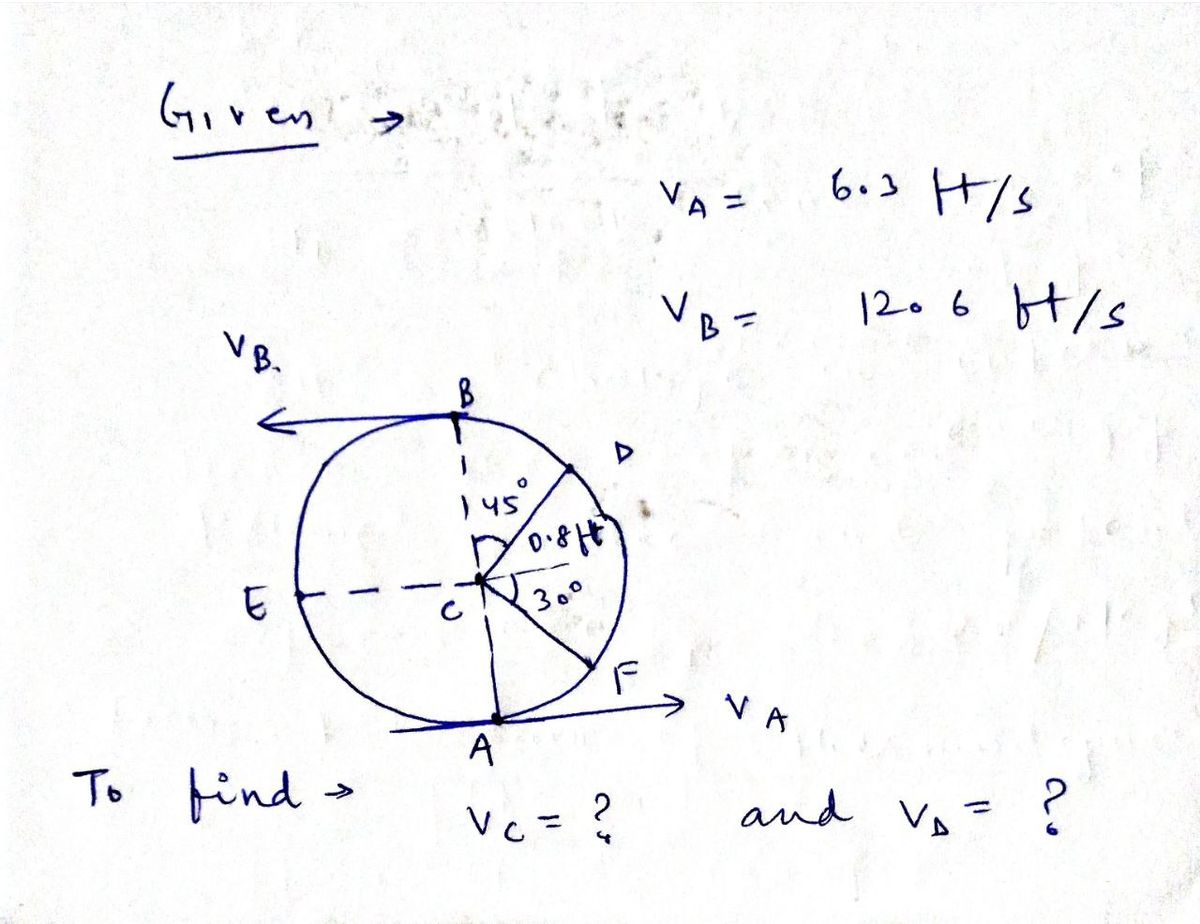 Given →
V A = 6.3 ft/s
V B = 12.6 ft/s
V B.
B
D
45°
0.8 ft
E
C
30°
F
V A
A
To find →
V C = ? and V D = ?